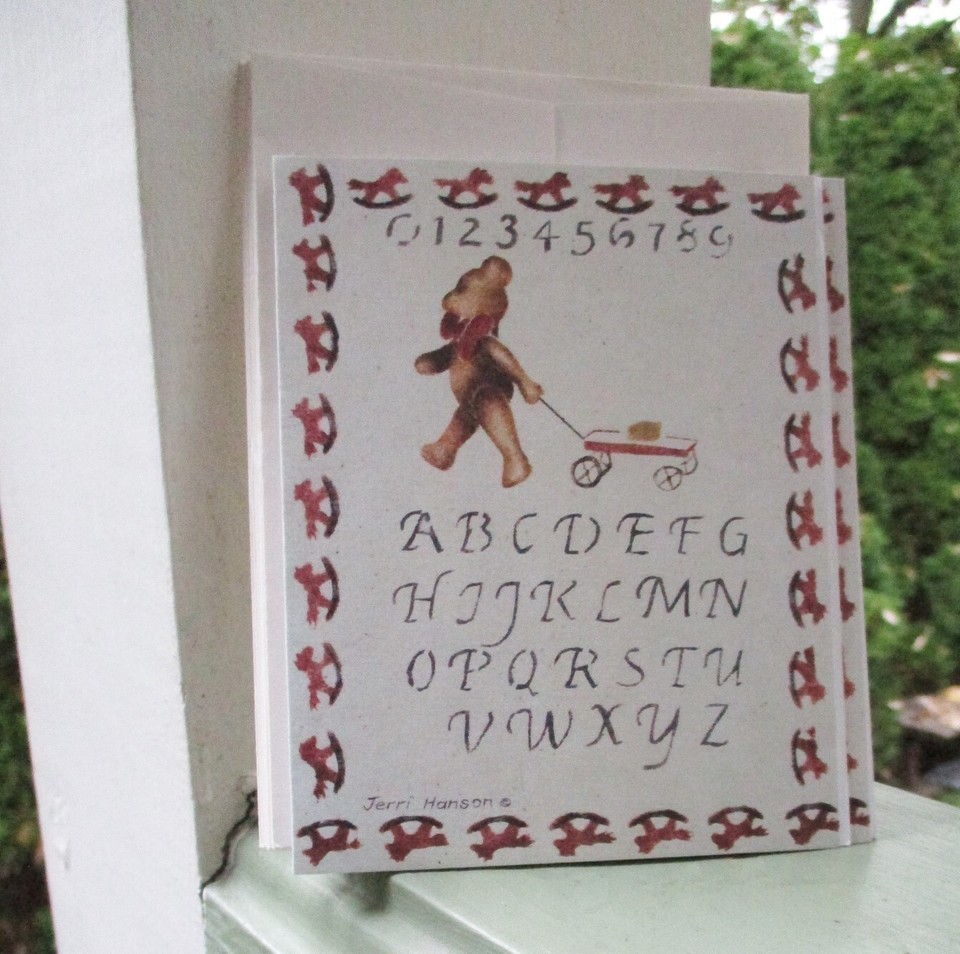 0 1 2 3 4 5 6 7 8 9
A B C D E F G
H I J K L M N
O P Q R S T U
V W X Y Z
Jerri Hanson ©